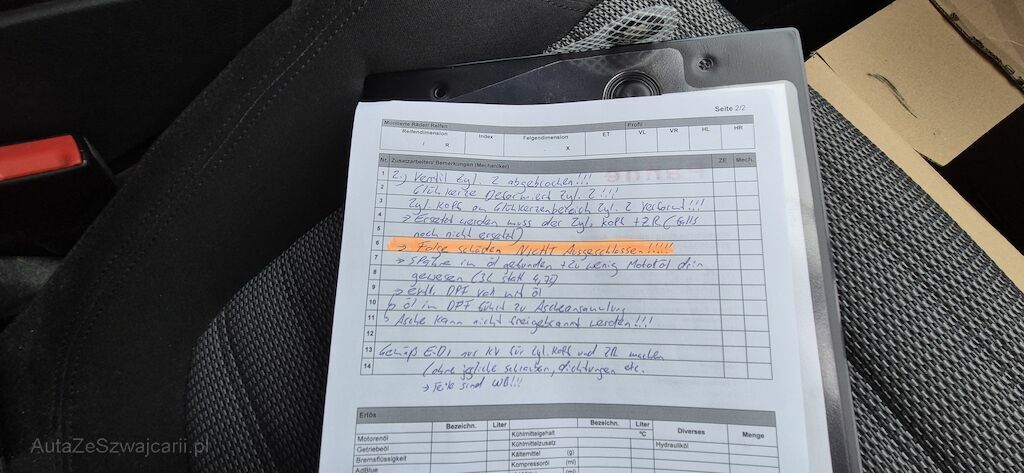 Seite 2/2
Montierte Räder/ Reifen Profil
Reifendimension Index Felgendimension ET VL VR HL HR
/ R X
Nr. Zusatzarbeiten/ Bemerkungen (Mechaniker) ZE Mech.
1 2.) Ventil Zyl. 2 abgebrochen!!!
2 Glühkerze Deformiert Zyl. 2!!!
3 Zyl. Kopf am Glühkerzenbereich Zyl. 2 verformt!!!
4 → Ersetzt werden muss der Zyl. Kopf + ZR (falls
5 noch nicht ersetzt)
6 → Folge schäden NICHT Ausgeschlossen!!!!!
7 → Späne im Öl gefunden + zu wenig Motoröl drin
8 gewesen (3L statt 4,7L)
9 → evtl. DPF voll mit Öl
10 ↳ Öl im DPF führt zu Ascheansammlung
11 ↳ Asche kann nicht freigebrannt werden!!!
12
13 Gemäß nur KV für Zyl. Kopf und ZR machen
14 (ohne jegliche schrauben, dichtungen etc.
→ Teile sind WB!!!
Erlös
Bezeichn. Liter Bezeichn. Liter Diverses Menge
Motorenöl Kühlmittelgehalt °C Hydrauliköl
Getriebeöl Kühlmittelzusatz
Bremsflüssigkeit Kältemittel (g)
AdBlue Kompressoröl (ml)
AutaZeSzwajcarii.pl